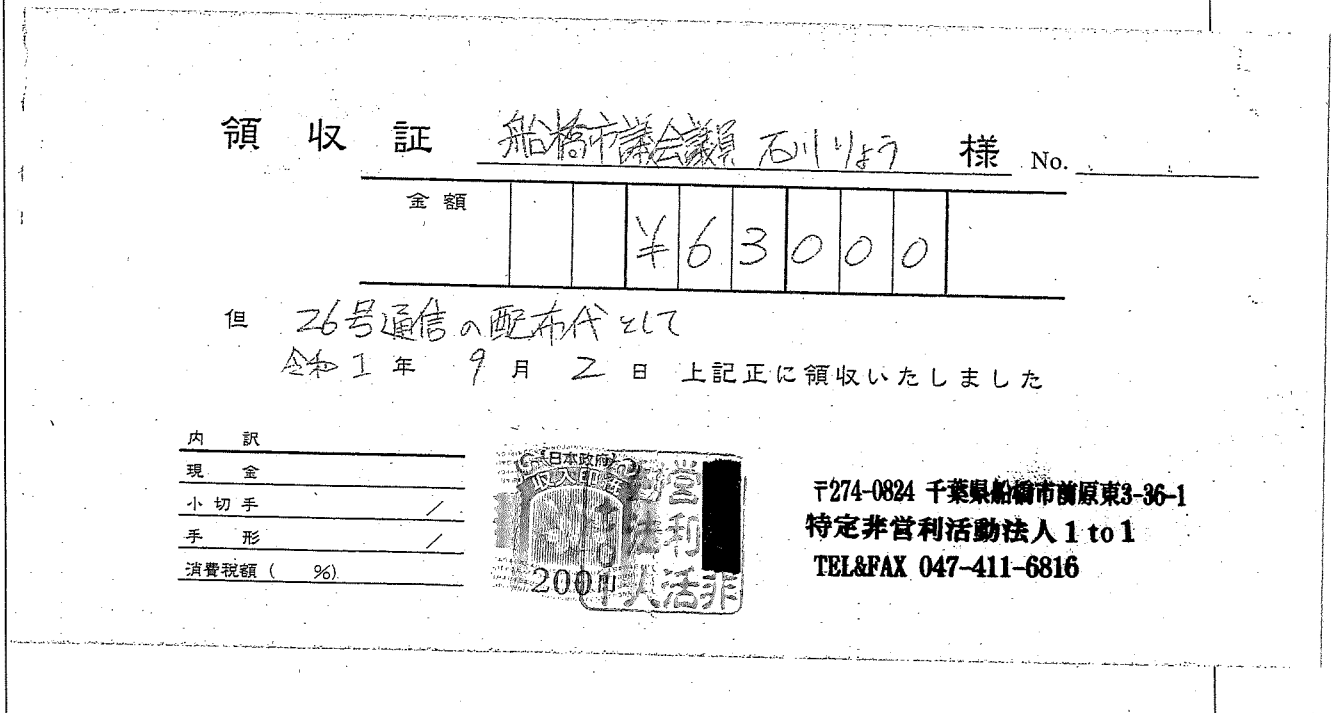 領収証 船橋市議会議員 石川りょう 様 No.
金額 ¥63000
但 26号通信の配布代として
令和1年 9月 2日 上記正に領収いたしました
内訳
現金
小切手 /
手形 /
消費税額( %)
日本政府
収入印紙
200円
〒274-0824 千葉県船橋市前原東3-36-1
特定非営利活動法人1to1
TEL&FAX 047-411-6816